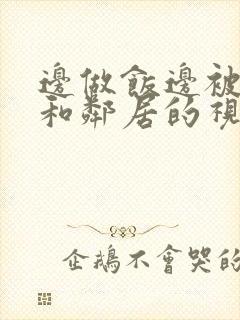 邊做飯邊被
和鄰居的視
企鵝不會哭的